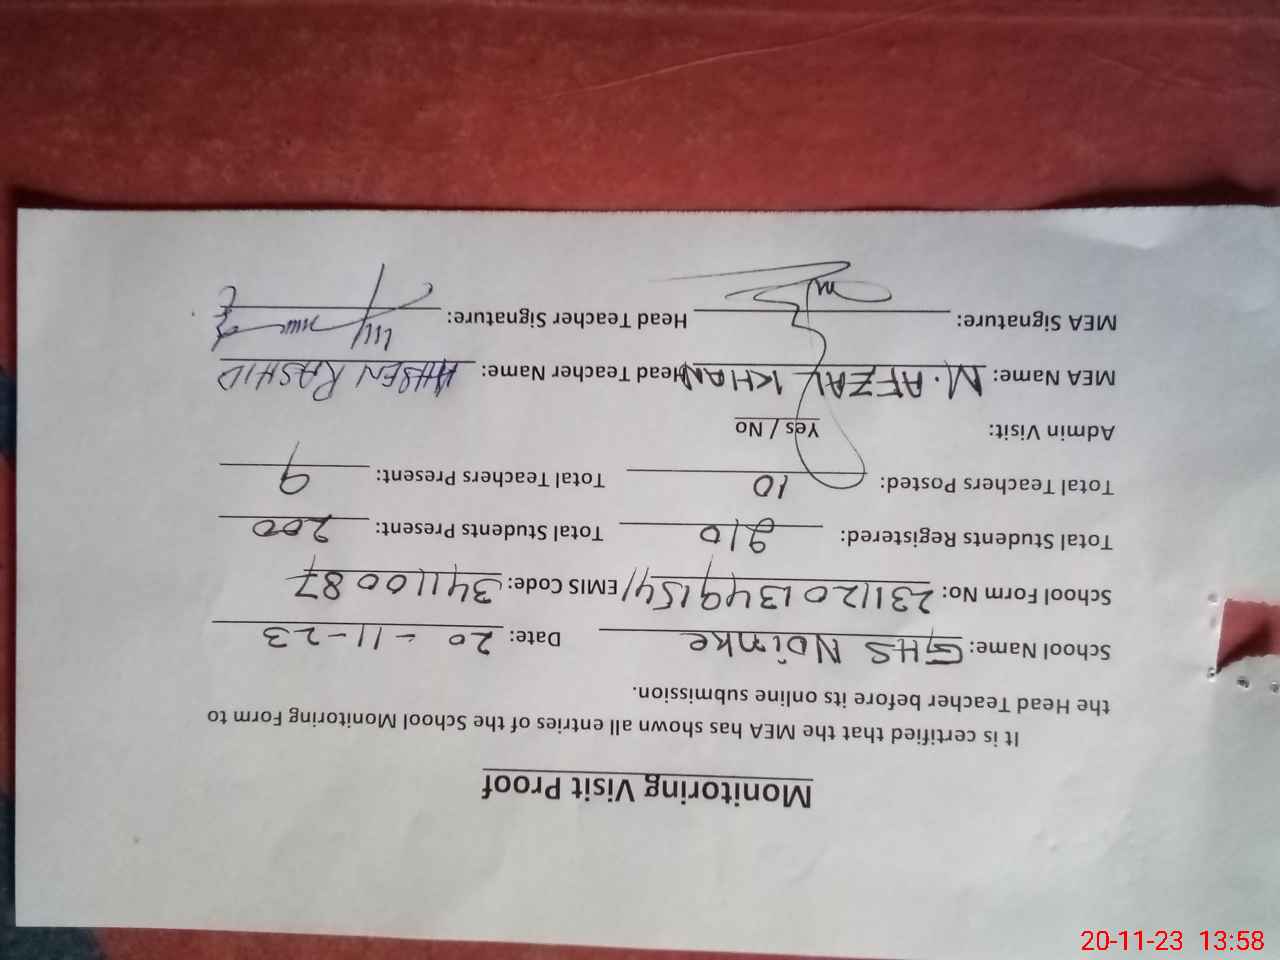 Monitoring Visit Proof
It is certified that the MEA has shown all entries of the School Monitoring Form to
the Head Teacher before its online submission.
School Name: GHS Noinke Date: 20-11-23
School Form No: 2311201349154/ EMIS Code: 34110087
Total Students Registered: 210 Total Students Present: 200
Total Teachers Posted: 10 Total Teachers Present: 9
Admin Visit: Yes / No
MEA Name: M. AFZAL KHAN Head Teacher Name: RASHID
MEA Signature: Head Teacher Signature:
20-11-23 13:58